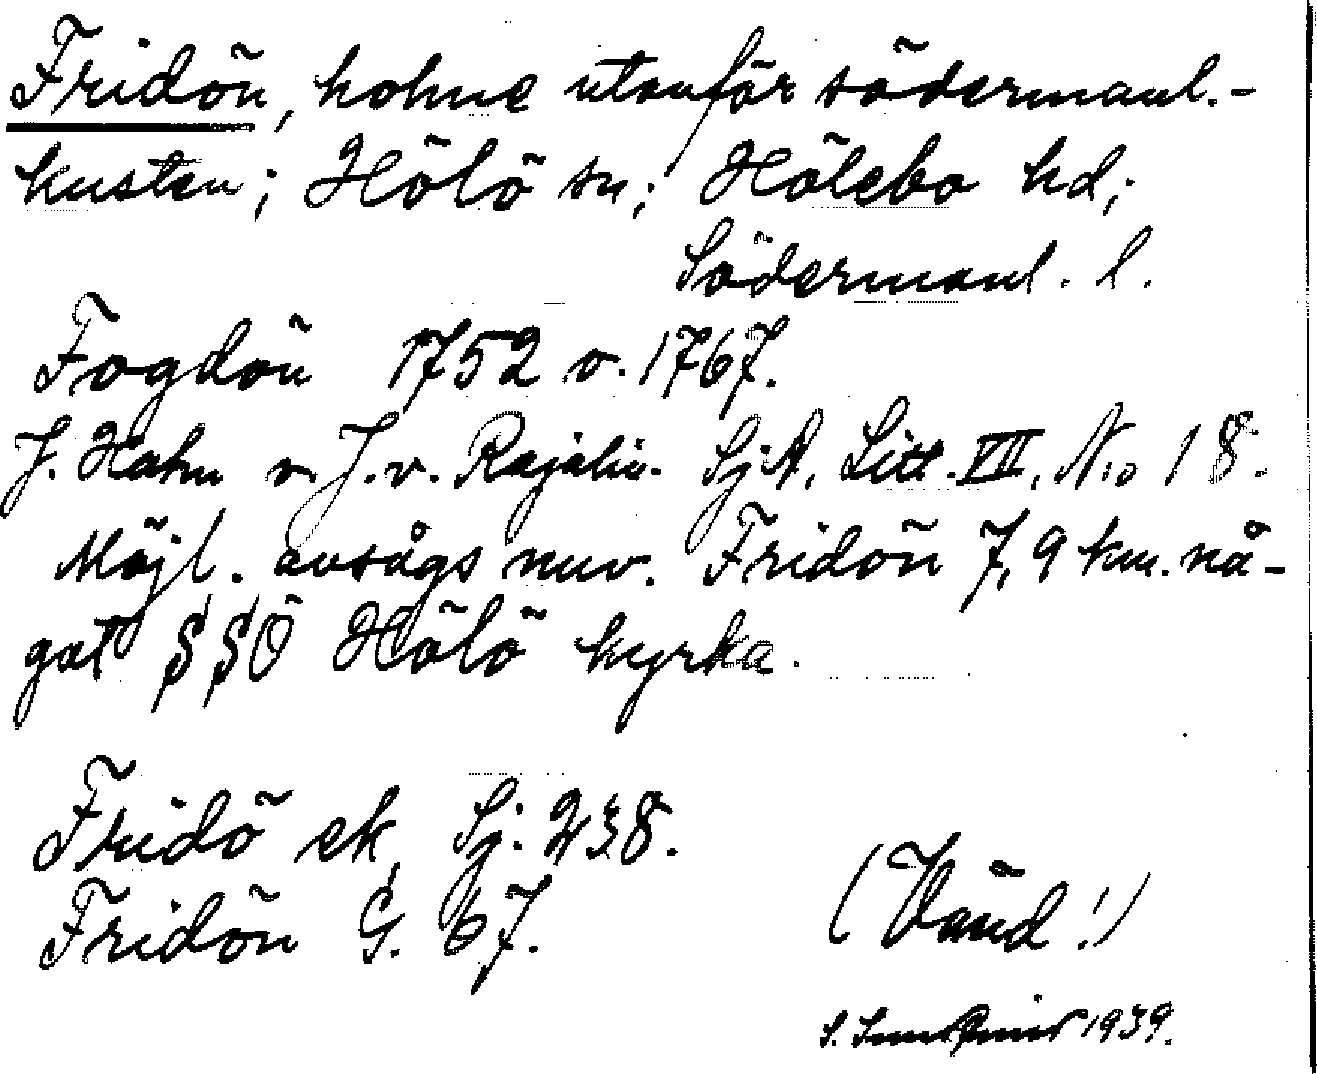 Fridön, holme utanför södermanl.-
kusten; Hölö sn; Hölebo hd;
Södermanl. l.
Fogdön 1752 o. 1767.
J. Hahn o. J. v. Rajalin. SjA, Litt. VIII, No 18.
Möjl. avsågs nuv. Fridön 7,9 km. nå-
got SSÖ Hölö kyrka.
Fridö ek, Sj. 238.
Fridön G. 67.
(Vänd!)
S. 1939.